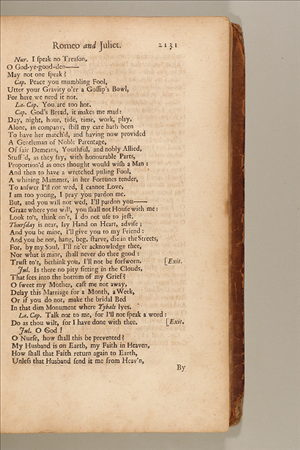 Romeo and Juliet. 2131
Nur. I speak no Treason,
O God-ye-good-den——
May not one speak?
Cap. Peace you mumbling Fool,
Utter your Gravity o'er a Gossip's Bowl,
For here we need it not.
La. Cap. You are too hot.
Cap. God's Bread, it makes me mad:
Day, night, hour, tide, time, work, play,
Alone, in company, still my care hath been
To have her match'd, and having now provided
A Gentleman of Noble Parentage,
Of fair Demeans, Youthful, and nobly Allied,
Stuff'd, as they say, with honourable Parts,
Proportion'd as ones thought would with a Man:
And then to have a wretched puling Fool,
A whining Mammet, in her Fortunes tender,
To answer I'll not wed, I cannot Love,
I am too young, I pray you pardon me.
But, and you will not wed, I'll pardon you——
Graze where you will, you shall not House with me:
Look to't, think on't, I do not use to jest,
Thursday is near, lay Hand on Heart, advise;
And you be mine, I'll give you to my Friend:
And you be not, hang, beg, starve, die in the Streets,
For, by my Soul, I'll ne'er acknowledge thee,
Nor what is mine, shall never do thee good:
Trust to't, bethink you, I'll not be forsworn. [Exit.
Jul. Is there no pity sitting in the Clouds,
That sees into the bottom of my Grief?
O sweet my Mother, cast me not away,
Delay this Marriage for a Month, a Week,
Or if you do not, make the bridal Bed
In that dim Monument where Tybalt lyes.
La. Cap. Talk not to me, for I'll not speak a word:
Do as thou wilt, for I have done with thee. [Exit.
Jul. O God!
O Nurse, how shall this be prevented?
My Husband is on Earth, my Faith in Heaven,
How shall that Faith return again to Earth,
Unless that Husband send it me from Heav'n,
By